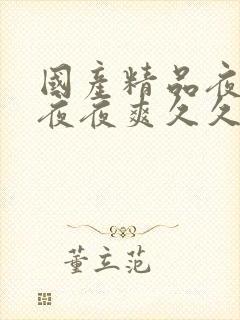 國產精品夜
夜夜爽久久
董立范